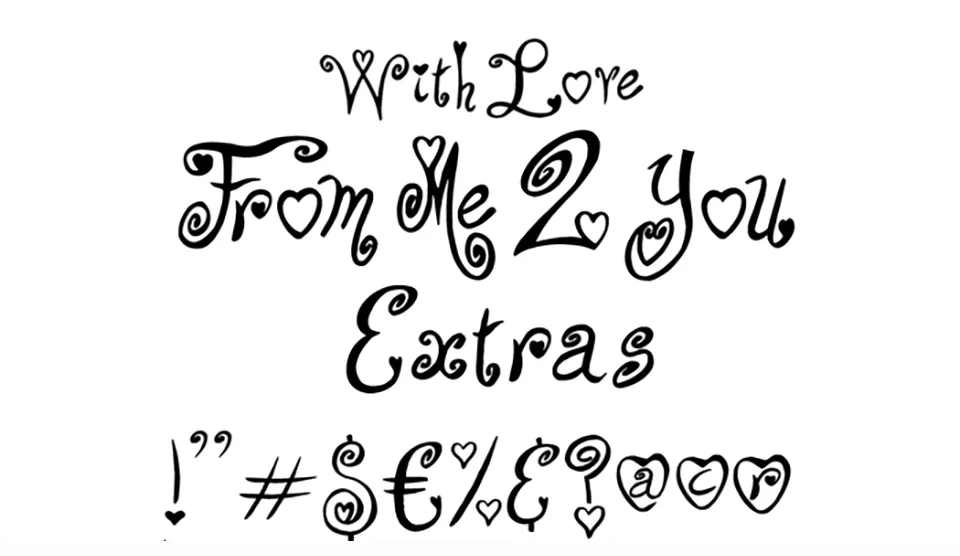 With Love
From Me 2 You
Extras
!"#$€%&?@©®